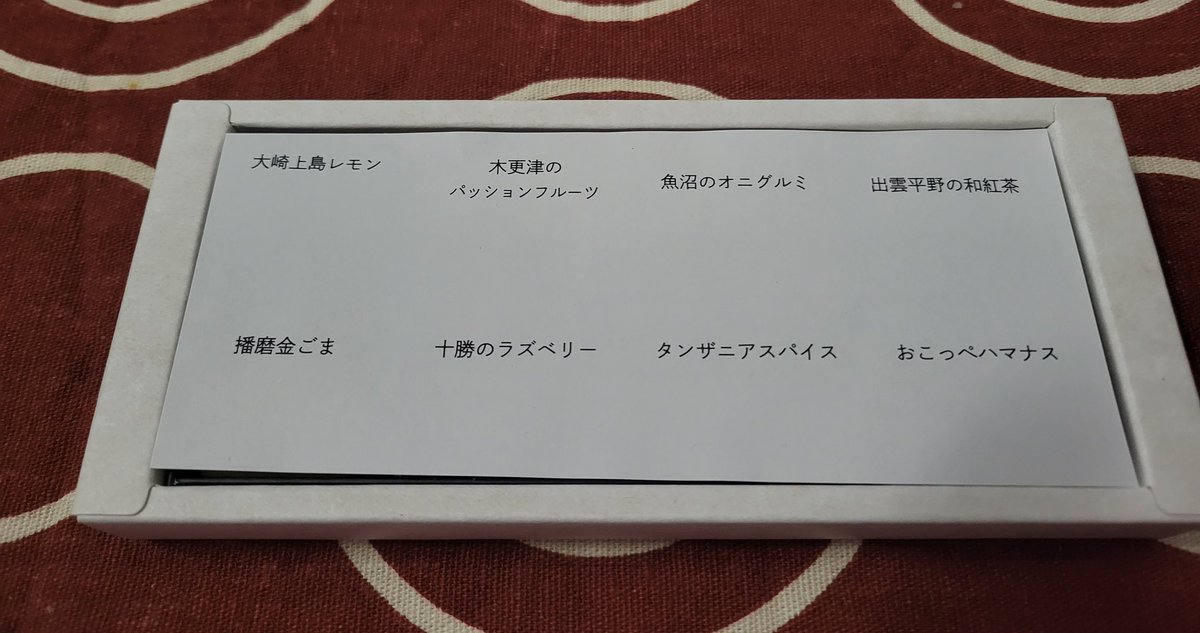 大崎上島レモン
木更津の
パッションフルーツ
魚沼のオニグルミ
出雲平野の和紅茶
播磨金ごま
十勝のラズベリー
タンザニアスパイス
おこっぺハマナス